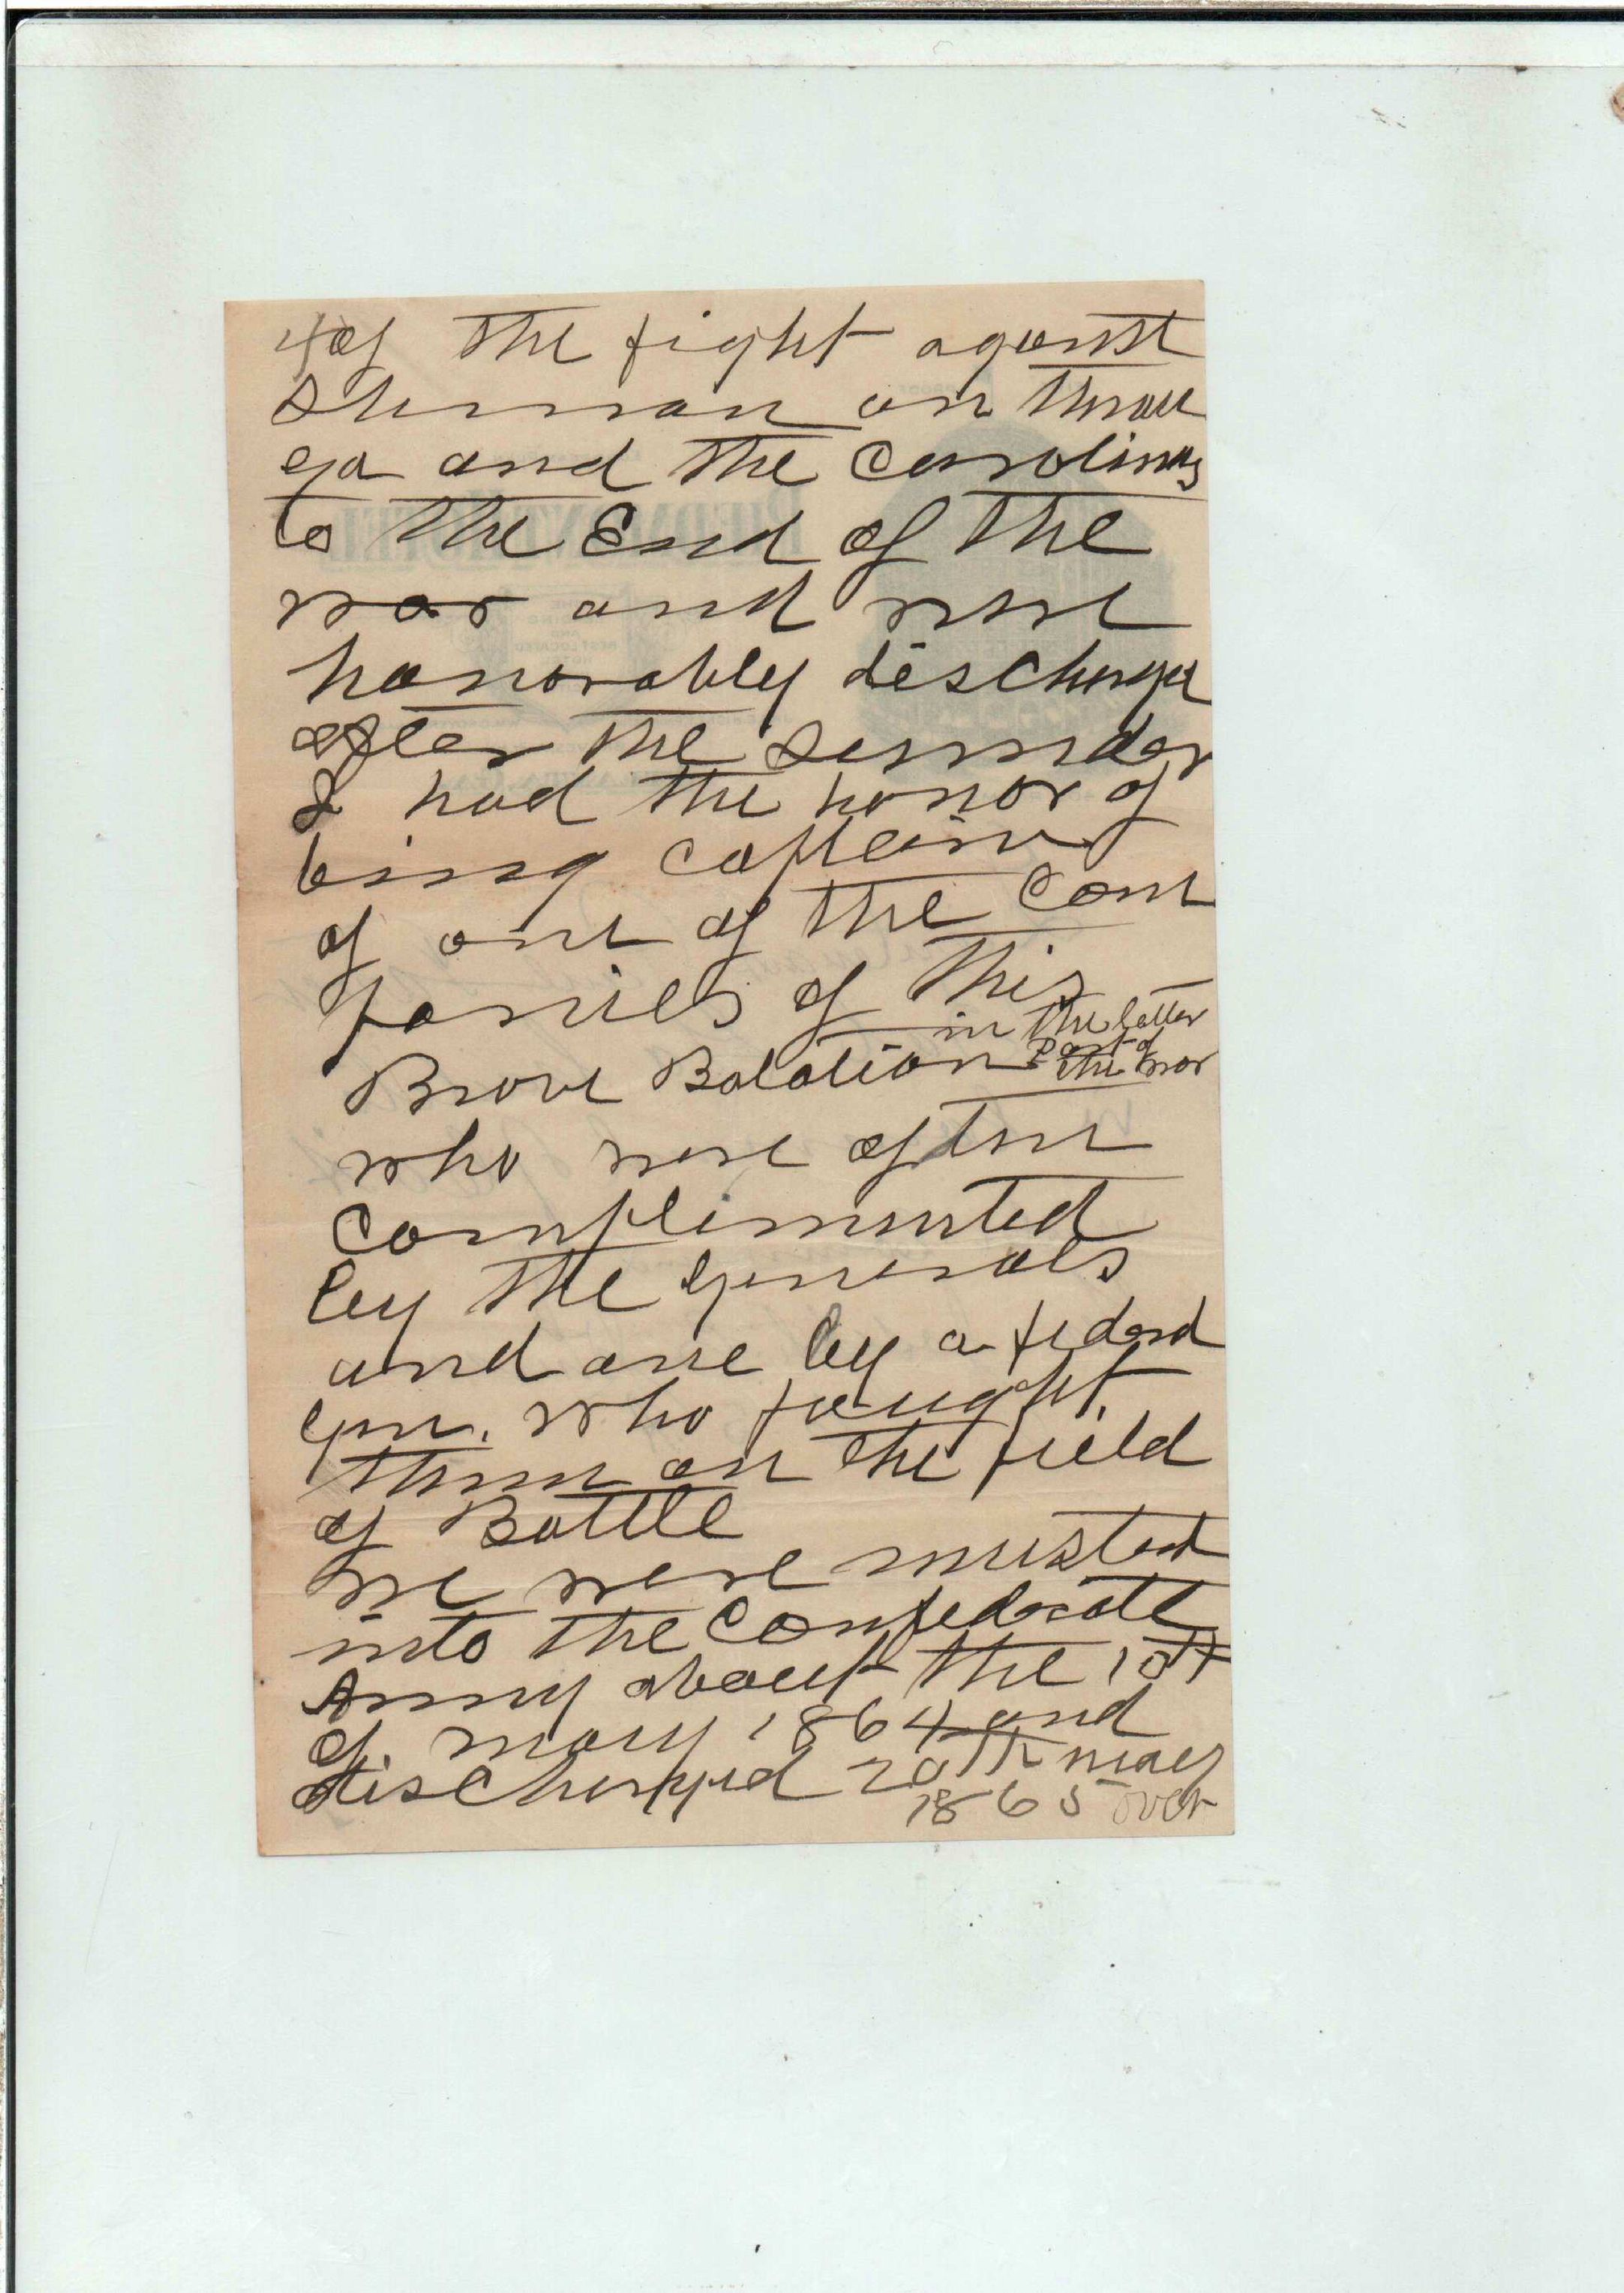 4 of the fight against
Sherman on throu
ga and the Carolinas
to the End of the
war and were
honorably discharged
after the Surrender
I had the honor of
being captain
of one of the Com
panies of this
in the latter
Brave Batalion Part of
the war
who were often
complimented
by the generals
and one by a federal
gen. who fought
them on the field
of Battle
we were musterd
into the Confederate
Army about the 10th
of may 1864 and
discharged 20th may
1865 over